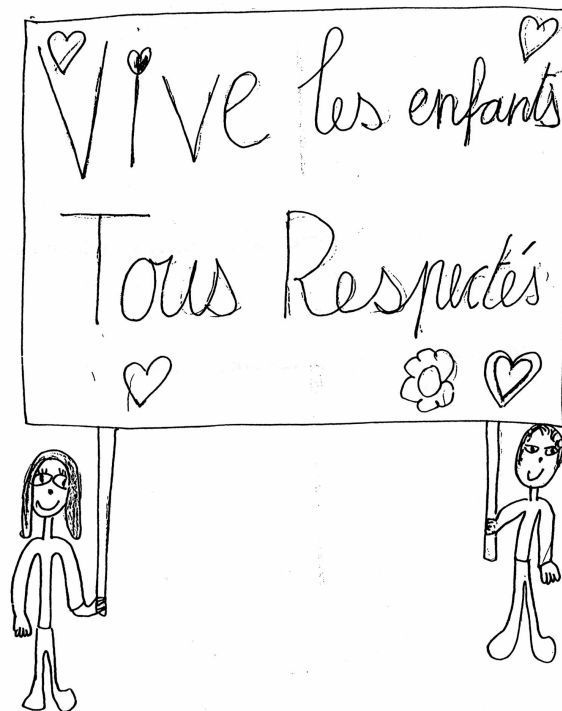 Vive les enfants
Tous Respectés